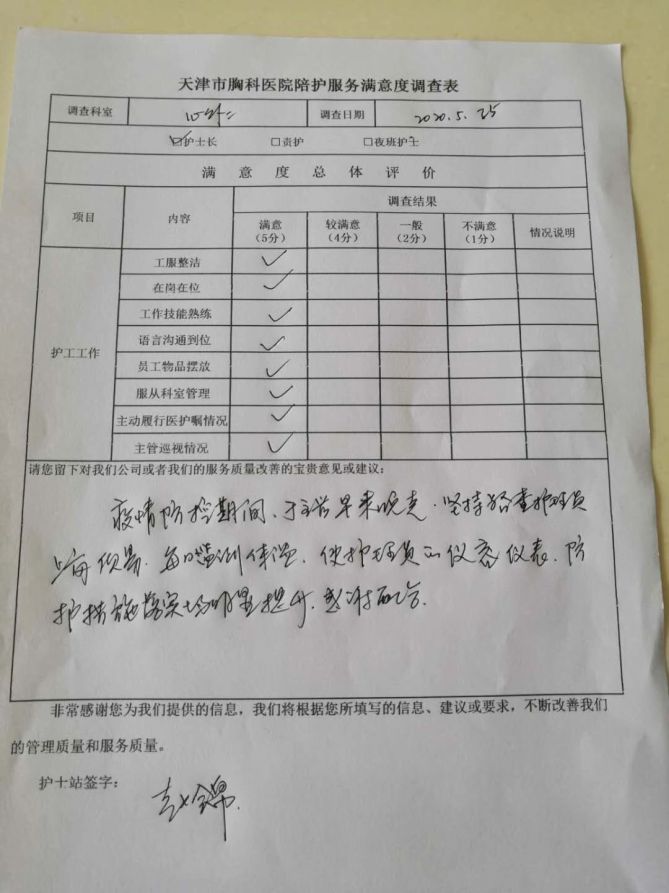 天津市胸科医院陪护服务满意度调查表
调查科室 心外二 调查日期 2020.5.25
☑护士长 □责护 □夜班护士
满意度总体评价
项目 内容 调查结果
满意 较满意 一般 不满意 情况说明
(5分) (4分) (2分) (1分)
工服整洁 ✓
在岗在位 ✓
工作技能熟练 ✓
语言沟通到位 ✓
护工工作 员工物品摆放 ✓
服从科室管理 ✓
主动履行医护嘱情况 ✓
主管巡视情况 ✓
请您留下对我们公司或者我们的服务质量改善的宝贵意见或建议:
疫情防控期间、早来晚走.坚持查护理员
每日监测体温,使护理员的仪容仪表、防
护措施落实均明显提升.感谢配合.
非常感谢您为我们提供的信息，我们将根据您所填写的信息、建议或要求，不断改善我们
的管理质量和服务质量。
护士站签字: